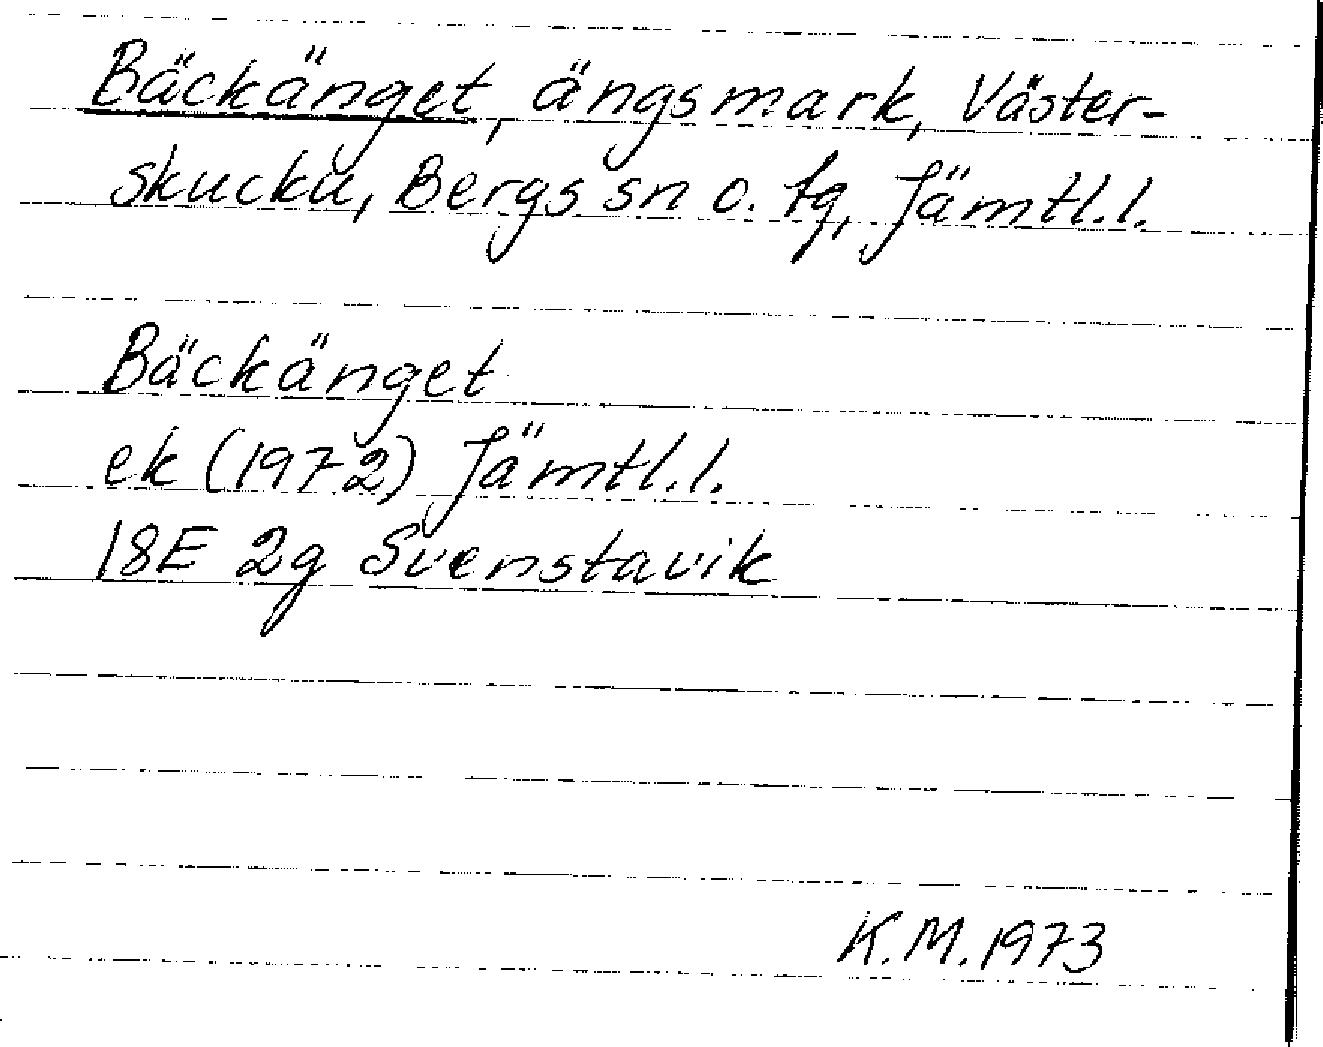 Bäckänget, ängsmark, Väster-
skucku, Bergs sn o. tg, Jämtl.l.
Bäckänget
ek (1972) Jämtl.l.
18E 2g Svenstavik
K.M. 1973